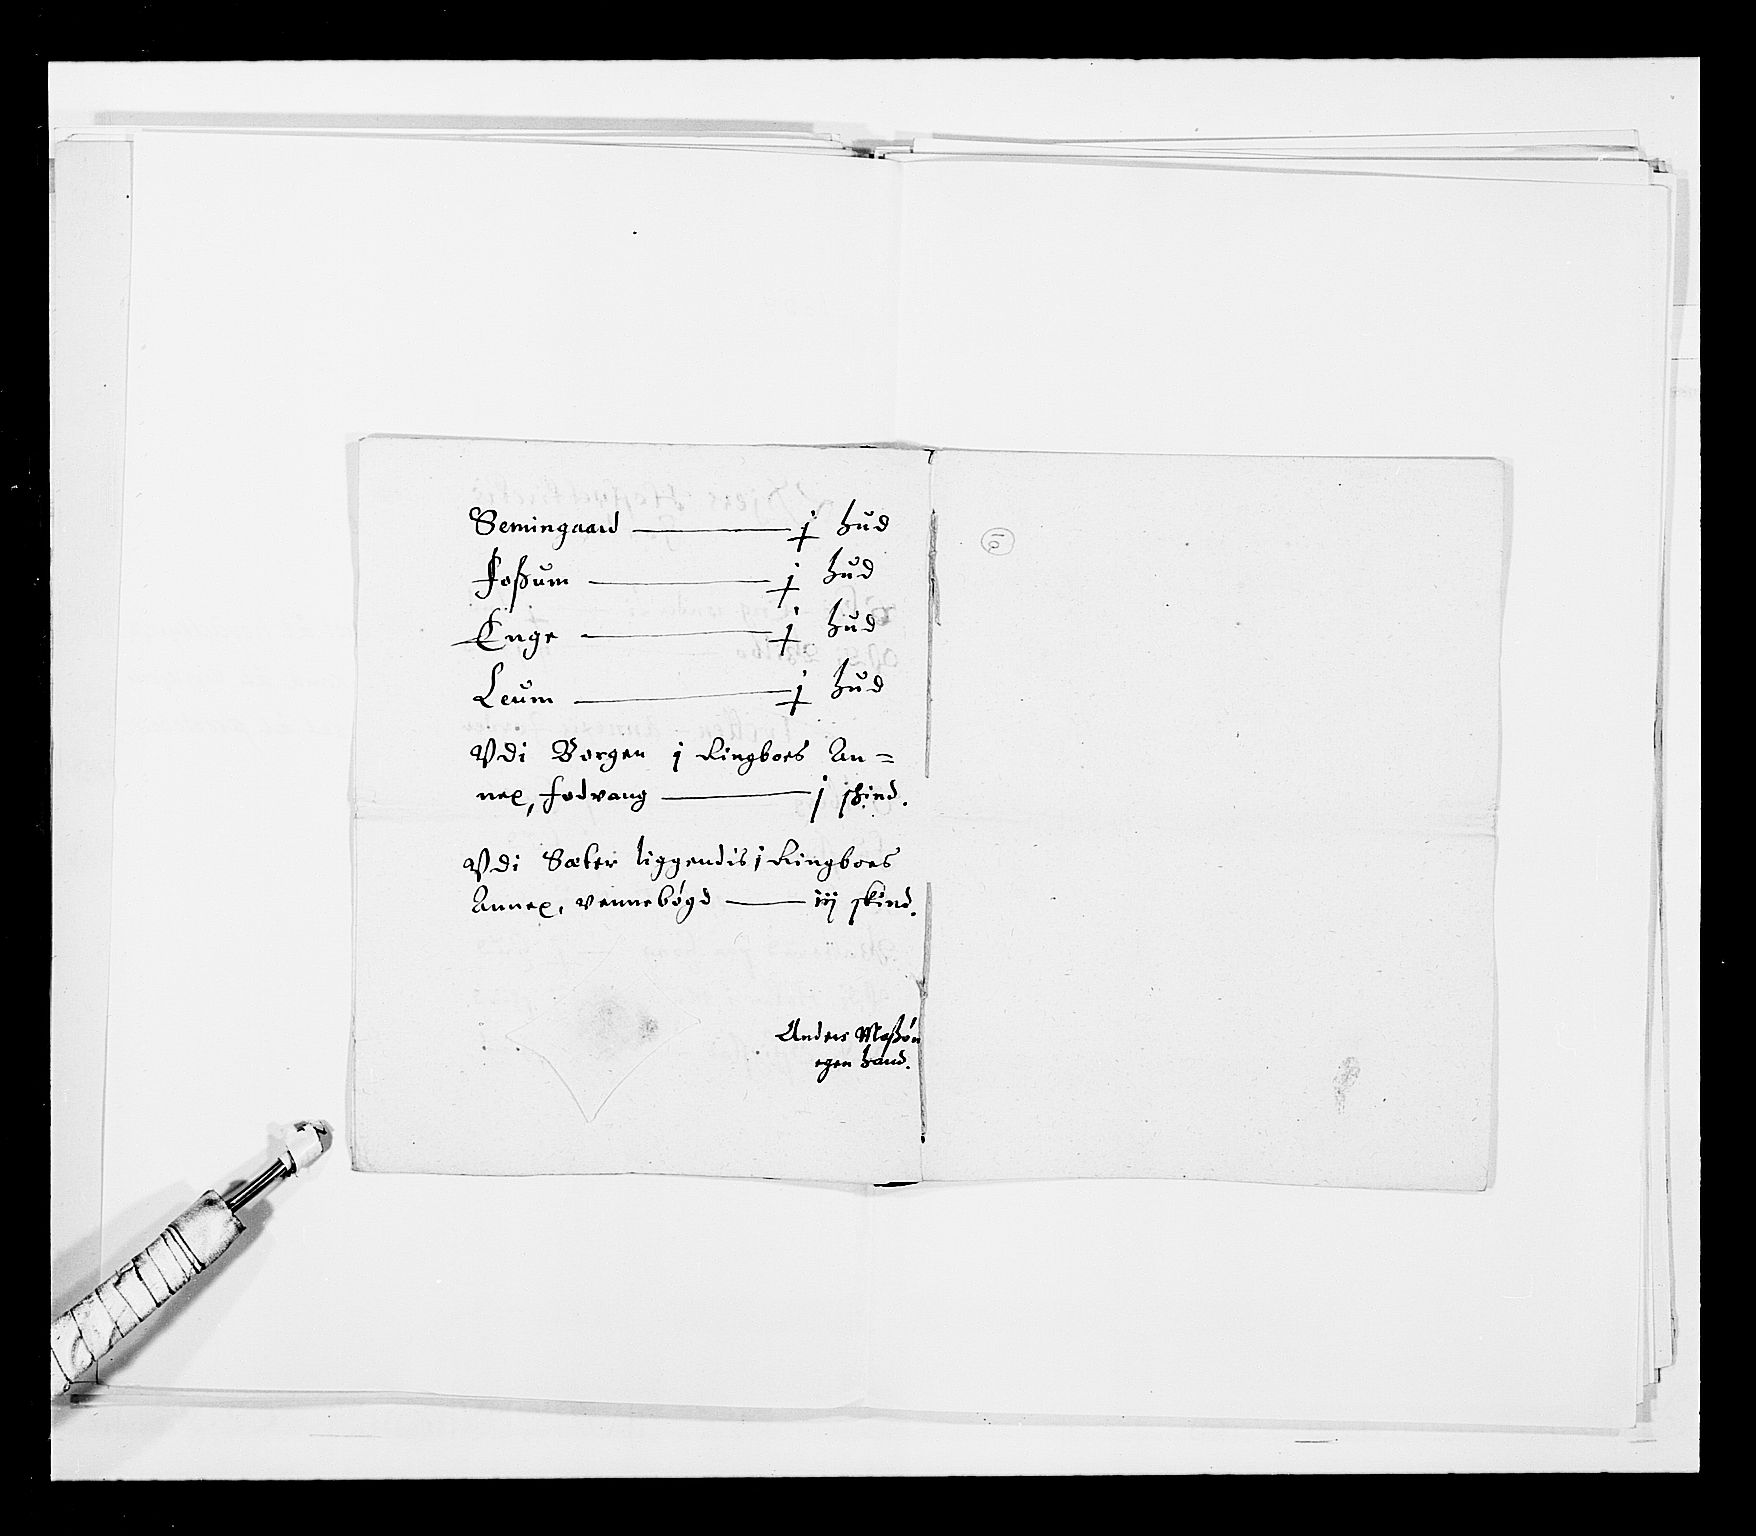 Semingaard — j hud
Foßum — j hud
Enge — j hud
Leum — j hud
Vdi Borgen j Ringboes An=
nex, Fodvang — j skind.
Vdi Sæter liggendis j Ringboes
Annex, Vennebögd — iij skind.
Anders Maßön
egen hand.